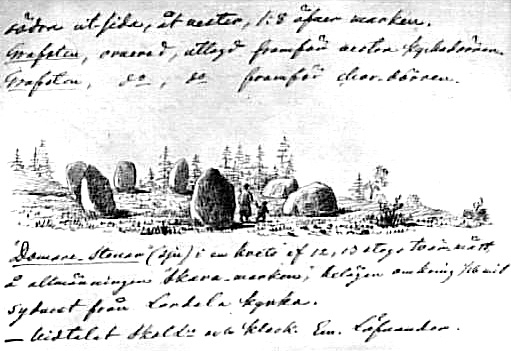 södra utsida, åt vester, 1:8 öfver marken.
Grafsten, ornerad, utlagd framför vestra kyrkdörren.
Grafsten, do, do framför chor-dörren.
"Domare-Stenar" (sju) i en krets af 12, 13 stegs tvärmått,
å allmänningen "Skara-marken", belägen omkring 1/16 mil
sydvest från Lerdala Kyrka.
— Uidtalat Skoll: och Klock: Em. Löfvander.